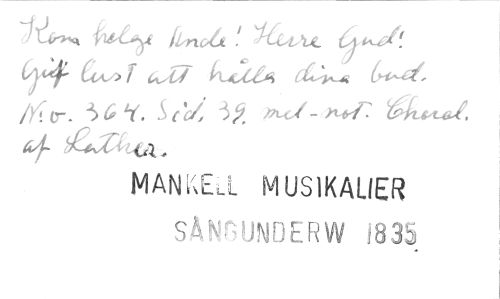 Kom helge Ande! Herre Gud!
Gif lust att hålla dina bud.
N:o. 364. Sid. 39. mel-not. Choral.
af Luther.
MANKELL MUSIKALIER
SÅNGUNDERW 1835